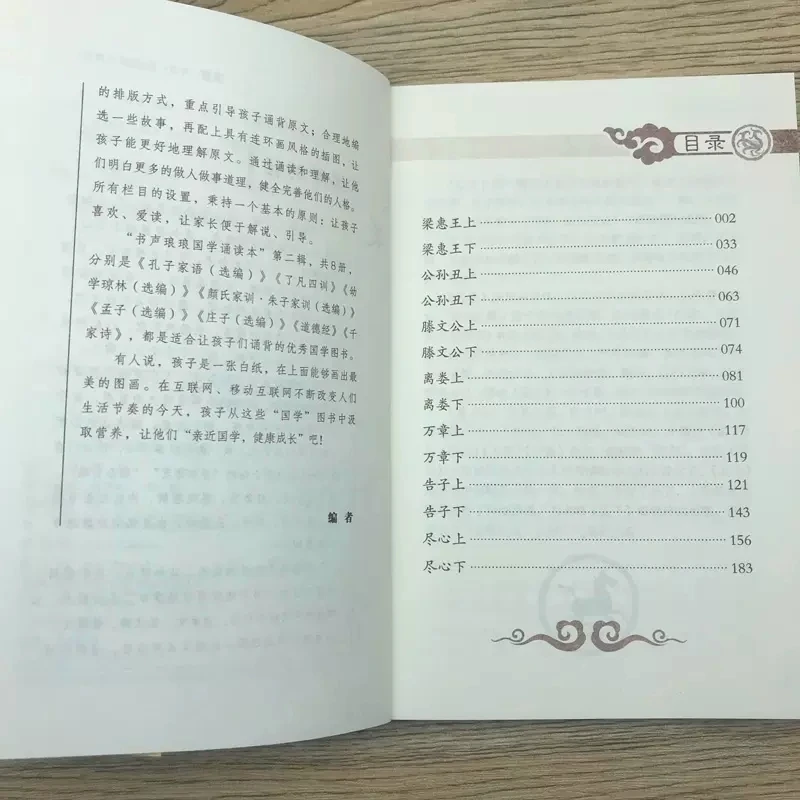 的排版方式，重点引导孩子诵背原文；合理地编
选一些故事，再配上具有连环画风格的插图，让
孩子能更好地理解原文。通过诵读和理解，让他
们明白更多的做人做事道理，健全完善他们的人格。
所有栏目的设置，秉持一个基本的原则：让孩子
喜欢、爱读，让家长便于解说、引导。
“书声琅琅国学诵读本”第二辑，共8册，
分别是《孔子家语（选编）》《了凡四训》《幼
学琼林（选编）》《颜氏家训·朱子家训（选编）》
《孟子（选编）》《庄子（选编）》《道德经》《千
家诗》，都是适合让孩子们诵背的优秀国学图书。
有人说，孩子是一张白纸，在上面能够画出最
美的图画。在互联网、移动互联网不断改变人们
生活节奏的今天，孩子从这些“国学”图书中汲
取营养，让他们“亲近国学，健康成长”吧！
编者
目录
梁惠王上 002
梁惠王下 033
公孙丑上 046
公孙丑下 063
滕文公上 071
滕文公下 074
离娄上 081
离娄下 100
万章上 117
万章下 119
告子上 121
告子下 143
尽心上 156
尽心下 183